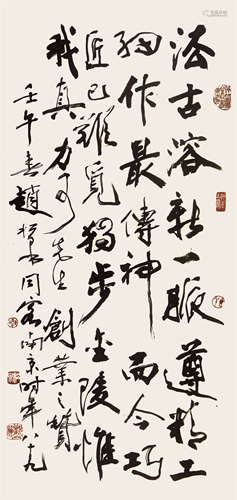 法古溶新一脈遵精工
細作最傳神而今巧
匠已難覓獨步金陵惟
我真力可先生創業之贊
壬午春趙客南京時年八十九